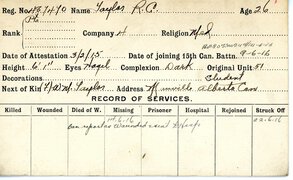 Reg. No. 487470 Name Taylor R.C. Age 26
Rank Pte. Company A Religion Meth
Date of Attestation 3/2/15 Date of joining 15th Can. Battn. 9-6-16
Height 6'1" Eyes Hazel Complexion Dark Original Unit 51
Decorations Student
Next of Kin Taylor Address Minnville Alberta Can
RECORD OF SERVICES.
Killed Wounded Died of W. Missing Prisoner Hospital Rejoined Struck Off
6.16 22.6.16
Can reported Wounded & sent to Hosp